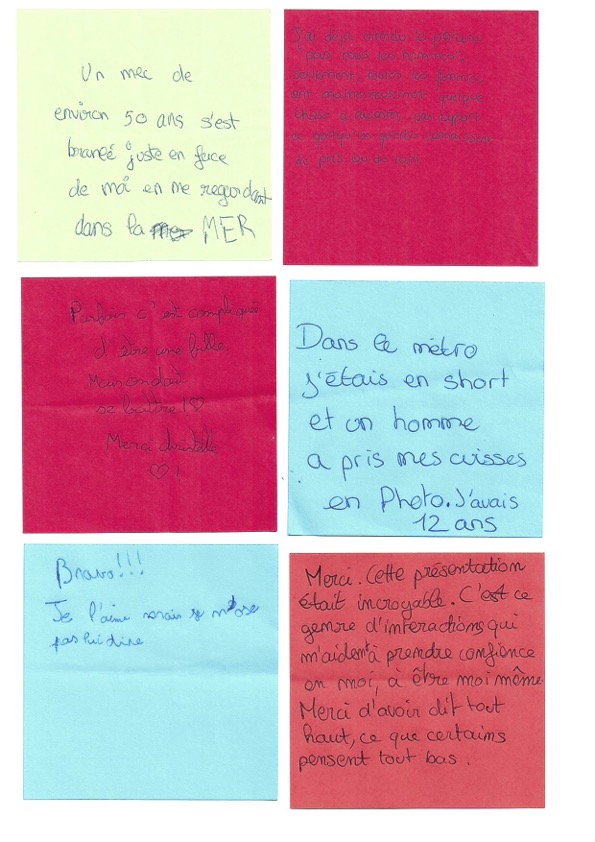 Un mec de
environ 50 ans s'est
brancé juste en face
de moi en me regardant
dans la MER
J'ai déjà entendu la phrase
"pas tous les hommes",
seulement, toutes les femmes
ont
chose à
Parfois c'est compliqué
d'être une fille
Mais on doit
se battre !♡
Merci
♡!
Dans le métro
j'étais en short
et un homme
a pris mes cuisses
en Photo. J'avais
12 ans
Bravo!!!
Je l'aime mais je n'ose
pas lui dire
Merci. Cette présentation
était incroyable. C'est ce
genre d'interactions qui
m'aident à prendre confience
en moi, à être moi même.
Merci d'avoir dit tout
haut, ce que certains
pensent tout bas.